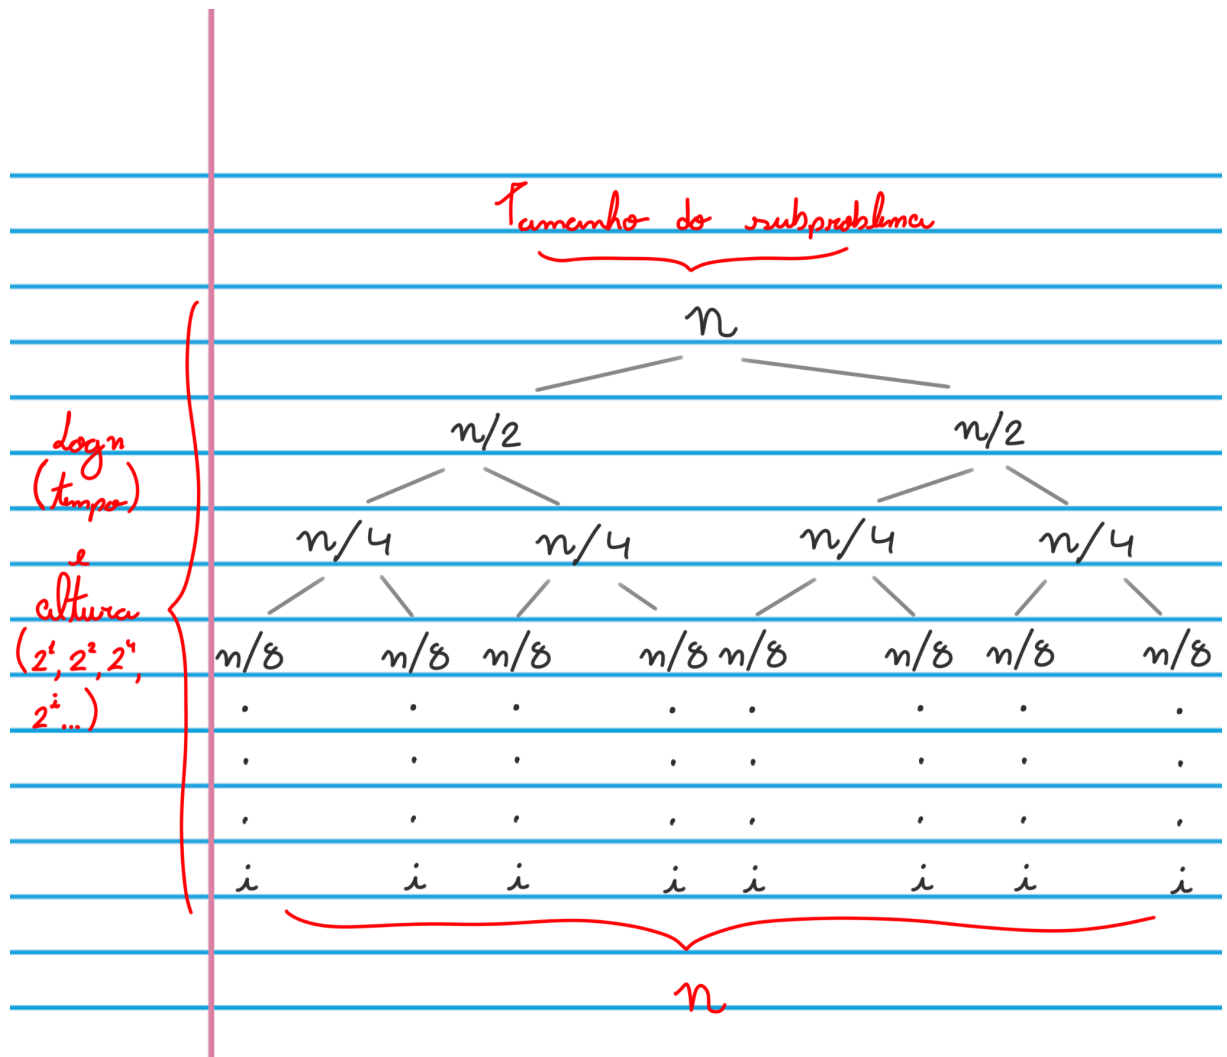 Tamanho do subproblema
n
n/2 n/2
n/4 n/4 n/4 n/4
n/8 n/8 n/8 n/8 n/8 n/8 n/8 n/8
. . . . . . . .
. . . . . . . .
. . . . . . . .
i i i i i i i i
n
Log n
(tempo)
e
altura
(2¹, 2², 2⁴,
2ⁱ...)